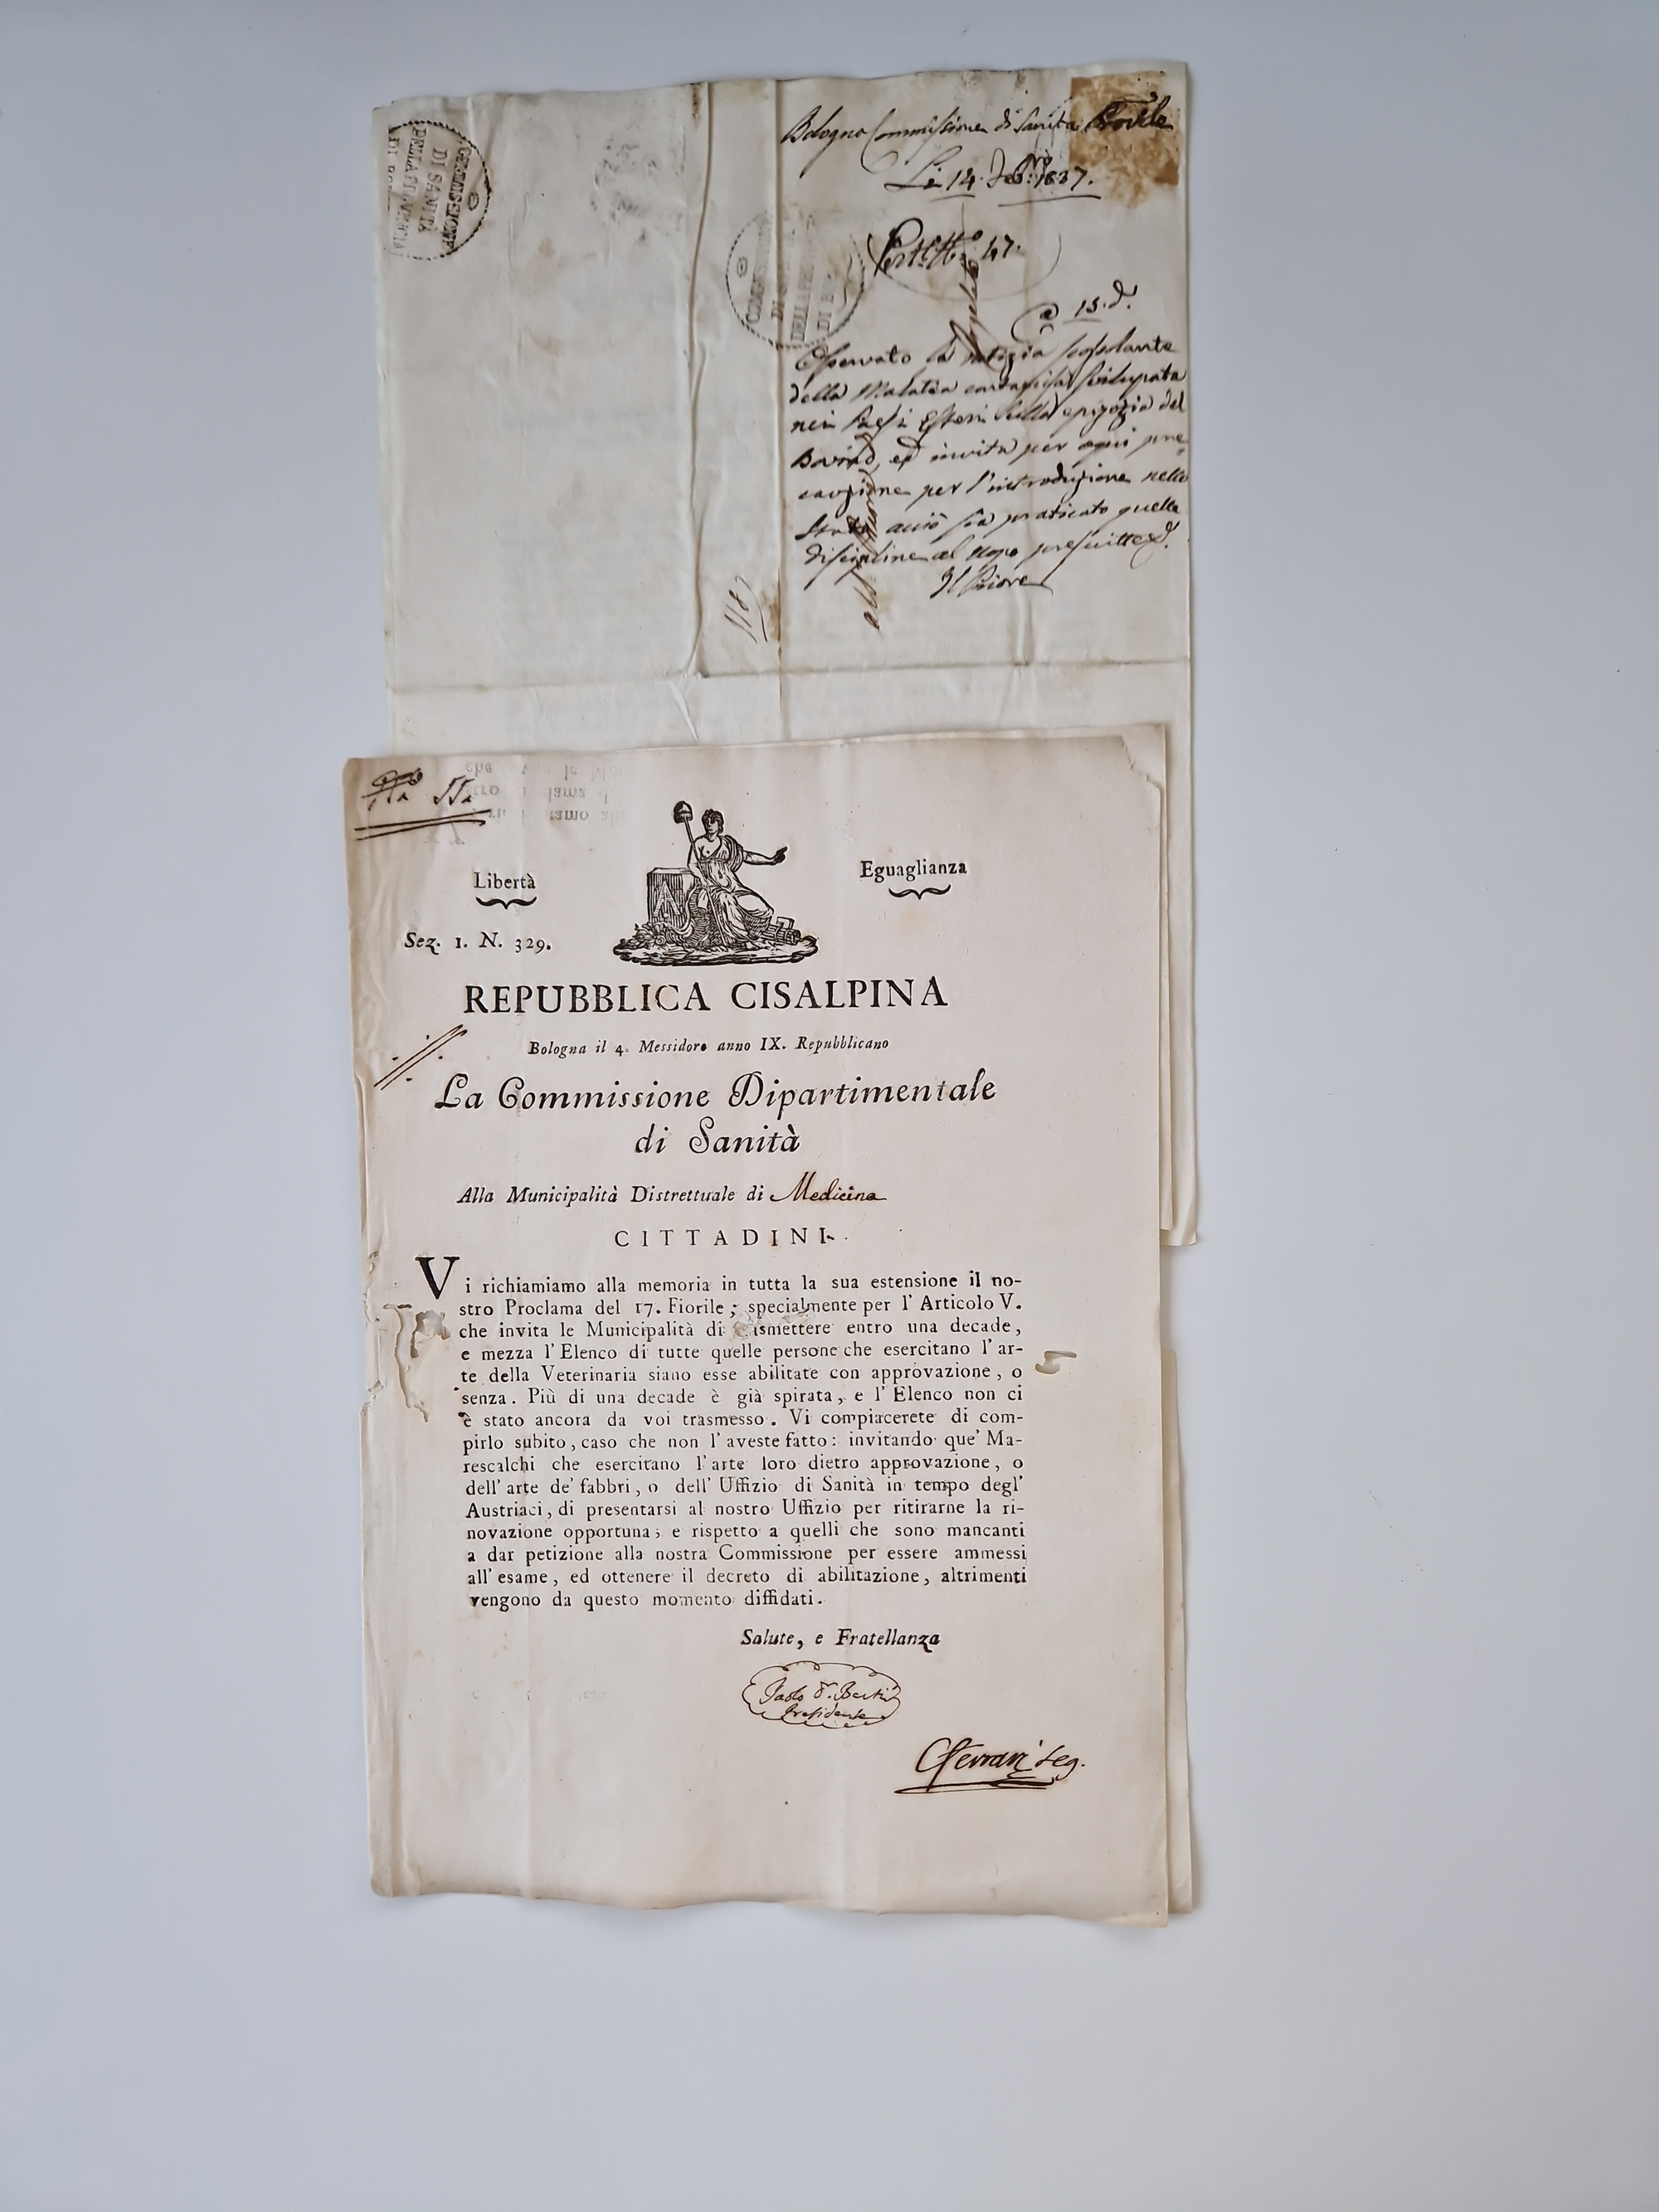 COMMISSIONE
DI SANITÀ
DELLA PROVINCIA
DI BO
Bologna Commissione di Sanità Provle
Li 14. 1837.
47.
@ 15. d.
DI
DI BO
Osservato la notizia
della Malatia contagiosa sviluppata
nei Paesi Esteri sulla epizozia del
Bovino, ed invita per ogni pre
cauzione per l'introduzione nello
Stato acciò sia praticato quelle
discipline al scopo prescritte
Il Priore
118
55
Libertà
Eguaglianza
Sez. 1. N. 329.
REPUBBLICA CISALPINA
Bologna il 4. Messidoro anno IX. Repubblicano
La Commissione Dipartimentale
di Sanità
Alla Municipalità Distrettuale di Medicina
CITTADINI.
Vi richiamiamo alla memoria in tutta la sua estensione il no-
stro Proclama del 17. Fiorile; specialmente per l' Articolo V.
che invita le Municipalità di ismettere entro una decade,
e mezza l' Elenco di tutte quelle persone che esercitano l' ar-
te della Veterinaria siano esse abilitate con approvazione, o
senza. Più di una decade è già spirata, e l' Elenco non ci
è stato ancora da voi trasmesso. Vi compiacerete di com-
pirlo subito, caso che non l' aveste fatto: invitando que' Ma-
rescalchi che esercitano l' arte loro dietro approvazione, o
dell' arte de' fabbri, o dell' Uffizio di Sanità in tempo degl'
Austriaci, di presentarsi al nostro Uffizio per ritirarne la ri-
novazione opportuna; e rispetto a quelli che sono mancanti
a dar petizione alla nostra Commissione per essere ammessi
all' esame, ed ottenere il decreto di abilitazione, altrimenti
vengono da questo momento diffidati.
Salute, e Fratellanza
Paolo Dr. Bertin
Presidente
C Ferrari Seg.